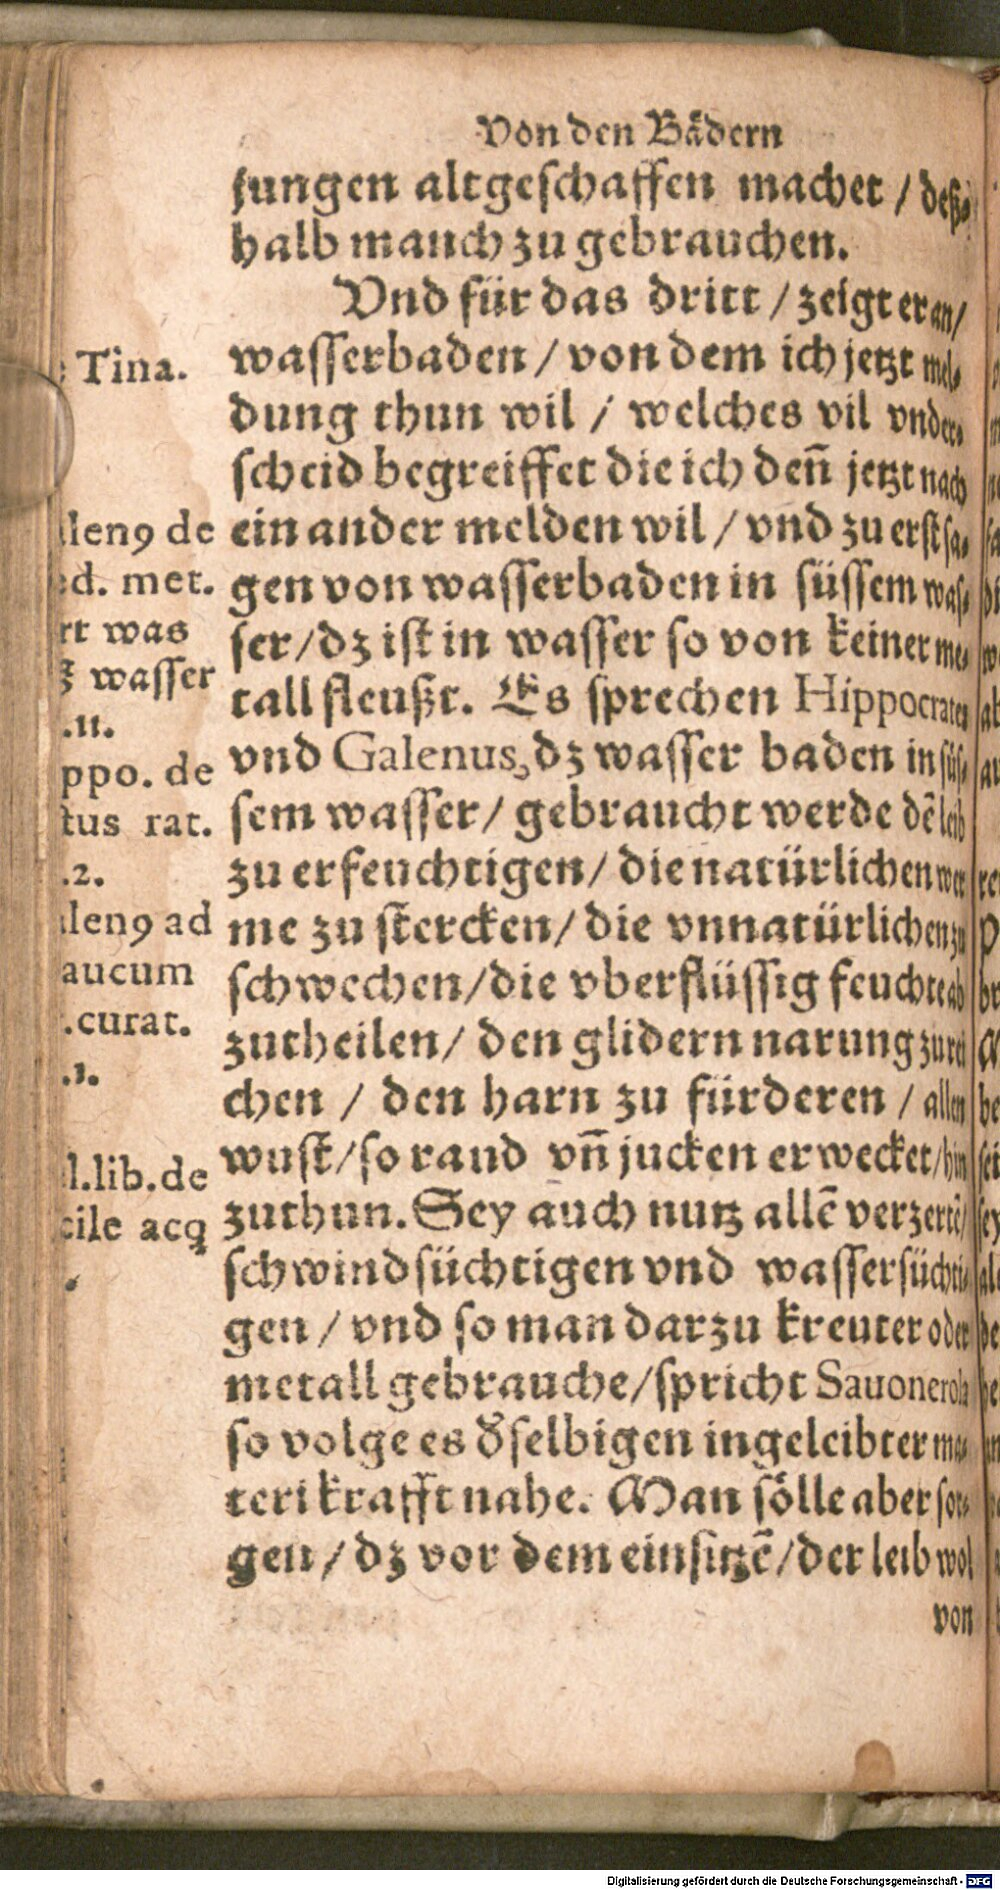 Von den Bädern
jungen altgeschaffen machet / deß-
halb manch zu gebrauchen.
Vnd für das dritt / zeigt er an /
wasserbaden / von dem ich jetzt mel-
dung thun wil / welches vil vnder-
scheid begreiffet die ich den̄ jetzt nach
ein ander melden wil / vnd zu erst sa-
gen von wasserbaden in süssem was-
ser / dz ist in wasser so von keiner me-
tall fleußt. Es sprechen Hippocrates
vnd Galenus, dz wasser baden in süs-
sem wasser / gebraucht werde dē leib
zu erfeuchtigen / die natürlichen wer
me zu stercken / die vnnatürlichen zu
schwechen / die vberflüssig feuchte ab
zutheilen / den glidern narung zu rei
chen / den harn zu fürderen / allen
wust / so raud vn̄ jucken erwecket / hin
zuthun. Sey auch nutz allē verzertē /
schwindsüchtigen vnd wassersüchti-
gen / vnd so man darzu kreuter oder
metall gebrauche / spricht Sauonerola
so volge es d̄selbigen ingeleibter ma-
teri krafft nahe. Man sölle aber sor-
gen / dz vor dem einsitzē / der leib wol
von
Tina.
lenꝰ de
d. met.
rt was
wasser
.11.
ppo. de
tus rat.
.2.
lenꝰ ad
aucum
.curat.
.1.
l. lib. de
cile acq
Digitalisierung gefördert durch die Deutsche Forschungsgemeinschaft - DFG